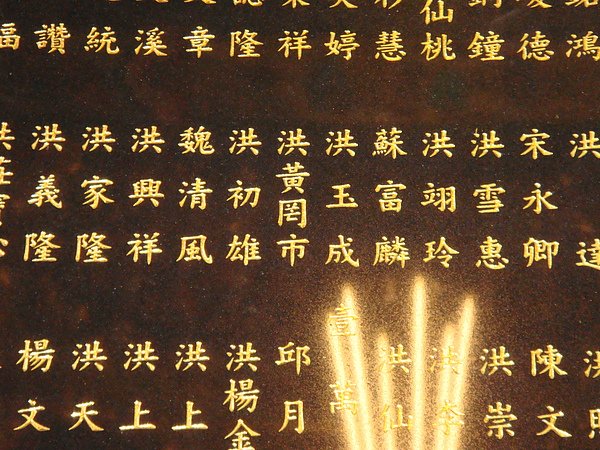 鴻
德
鐘
仙桃
慧
婷
祥
隆
章
溪
統
讚
福
洪達
宋永卿
洪雪惠
洪翊玲
蘇富麟
洪玉成
洪黃罔市
洪初雄
魏清風
洪興祥
洪家隆
洪義隆
洪
陳文
洪崇
洪李
洪仙
壹萬
邱月
洪楊金
洪上
洪上
洪天
楊文